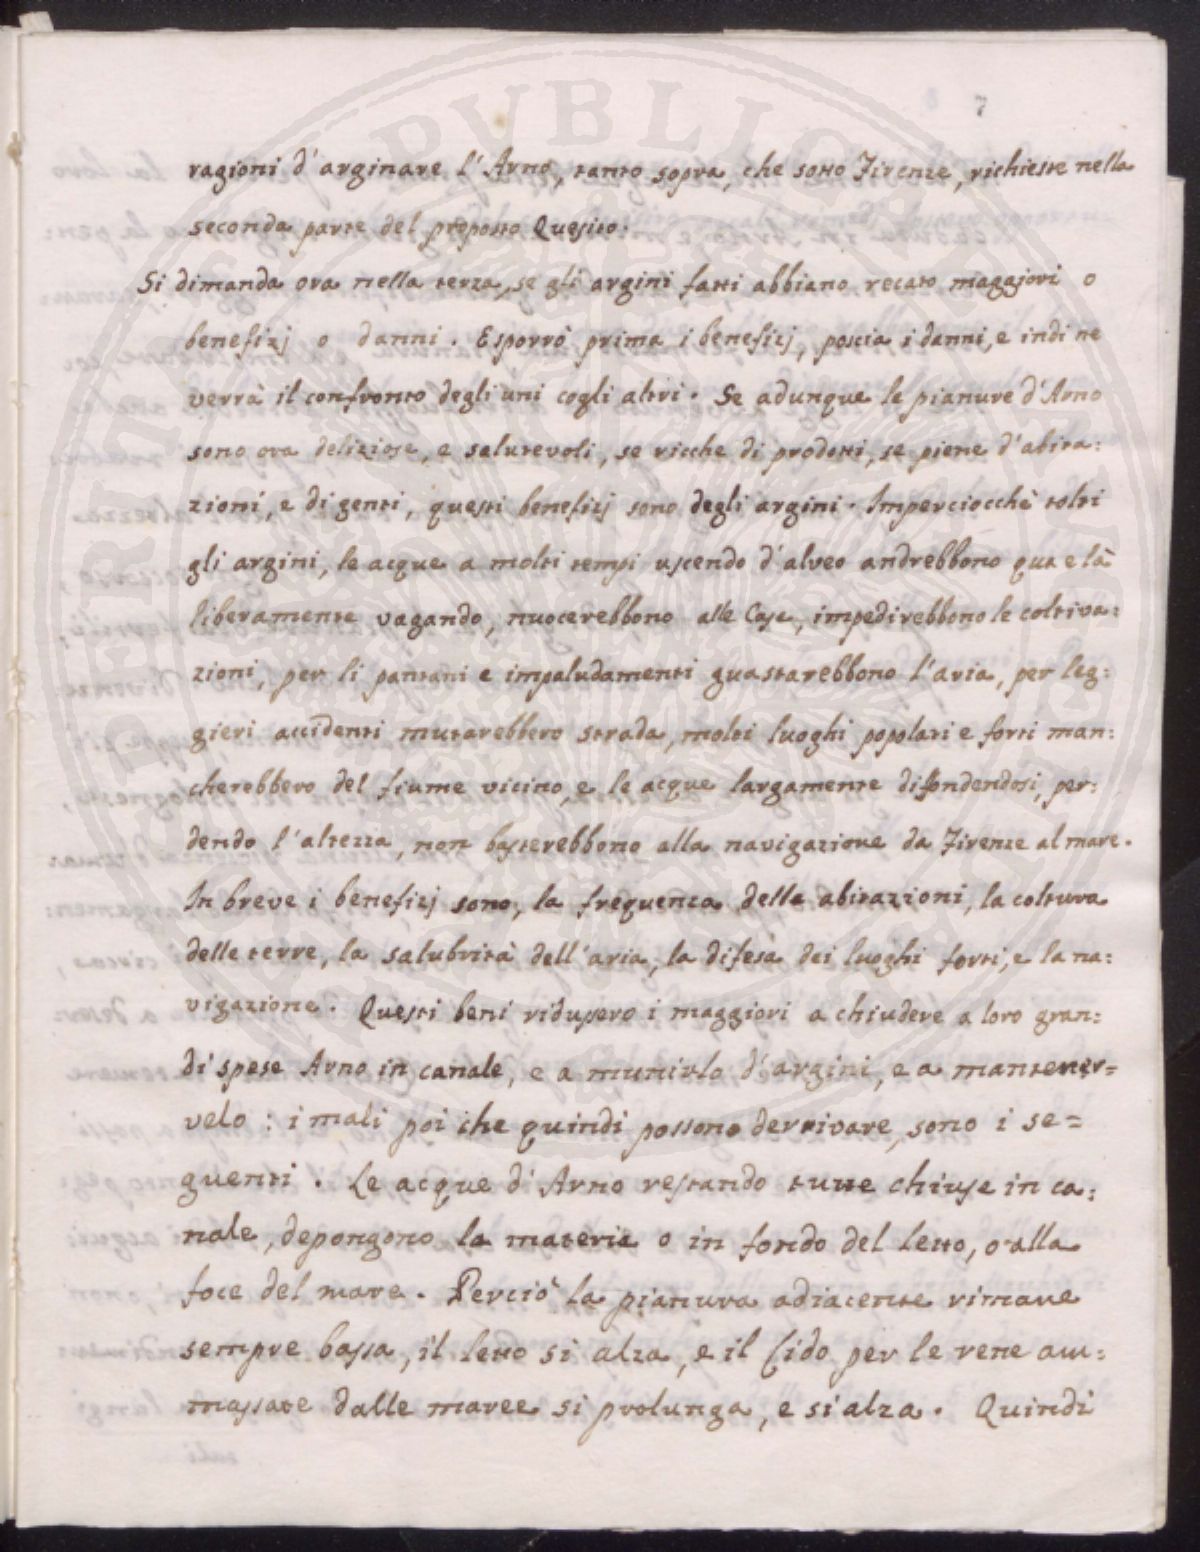 7
ragioni d'arginare l'Arno, tanto sopra, che sotto Firenze, richieste nella
seconda parte del proposto Quesito.
Si dimanda ora nella terza, se gli argini fatti abbiano recato maggiori o
benefizj o danni. Esporrò prima i benefizj, poscia i danni, e indi ne
verrà il confronto degli uni cogli altri. Se adunque le pianure d'Arno
sono ora deliziose, e salutevoli, se ricche di prodotti, se piene d'abita:
zioni, e di genti, questi benefizj sono degli argini. Imperciocchè tolti
gli argini, le acque a molti tempi uscendo d'alveo andrebbono qua e là
liberamente vagando, nuocerebbono alle Case, impedirebbono le coltiva:
zioni, per li pantani e impaludamenti guastarebbono l'aria, per leg:
gieri accidenti mutarebbero strada, molti luoghi popolati e forti man:
cherebbero del fiume vicino, e le acque largamente diffondendosi, per:
dendo l'altezza, non basterebbono alla navigazione da Firenze al mare.
In breve i benefizj sono, la frequenza delle abitazioni, la coltura
delle terre, la salubrità dell'aria, la difesa dei luoghi forti, e la na:
vigazione. Questi beni ridussero i maggiori a chiudere a loro gran:
di spese Arno in canale, e a munirlo d'argini, e a mantener=
velo: i mali poi che quindi possono derivare, sono i se=
guenti. Le acque d'Arno restando tutte chiuse in ca:
nale, depongono la materia o in fondo del letto, o alla
foce del mare. Perciò la pianura adiacente rimane
sempre bassa, il letto si alza, e il Lido per le rene am:
massate dalle maree si prolunga, e si alza. Quindi
PVBLICAE